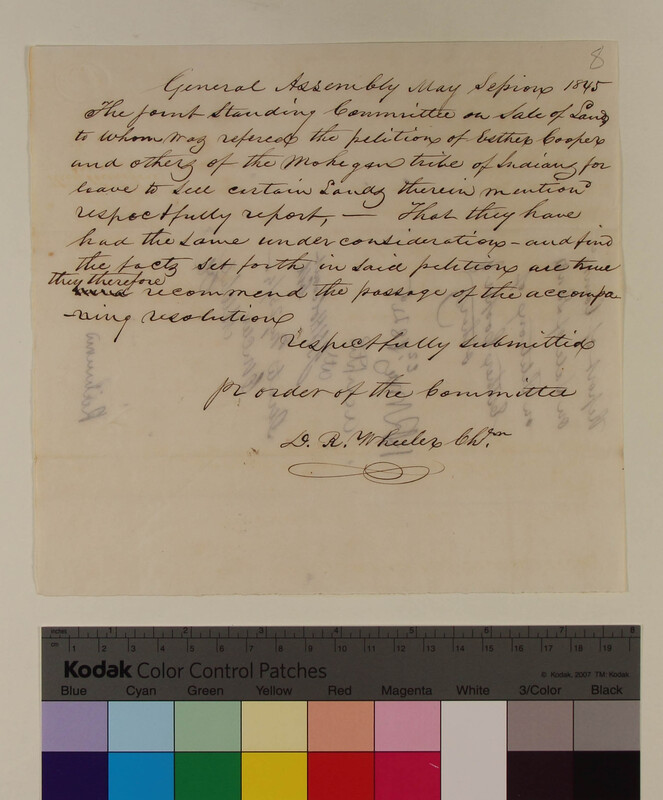 8
General Assembly May Session 1845
The joint Standing Committee on Sale of Lands
to whom was refered the petition of Esther Cooper
and others of the Mohegan tribe of Indians for
leave to sell certain Lands therein mentiond
respectfully report, — That they have
had the same under consideration – and find
the facts set forth in said petition are true
they therefore
recommend the passage of the accompa-
-ning resolution
respectfully submitted
pr order of the Committee
D. R. Wheeler Chrm.
inches 1 2 3 4 5 6 7 8
cm 1 2 3 4 5 6 7 8 9 10 11 12 13 14 15 16 17 18 19
Kodak Color Control Patches
© Kodak, 2007 TM: Kodak
Blue Cyan Green Yellow Red Magenta White 3/Color Black